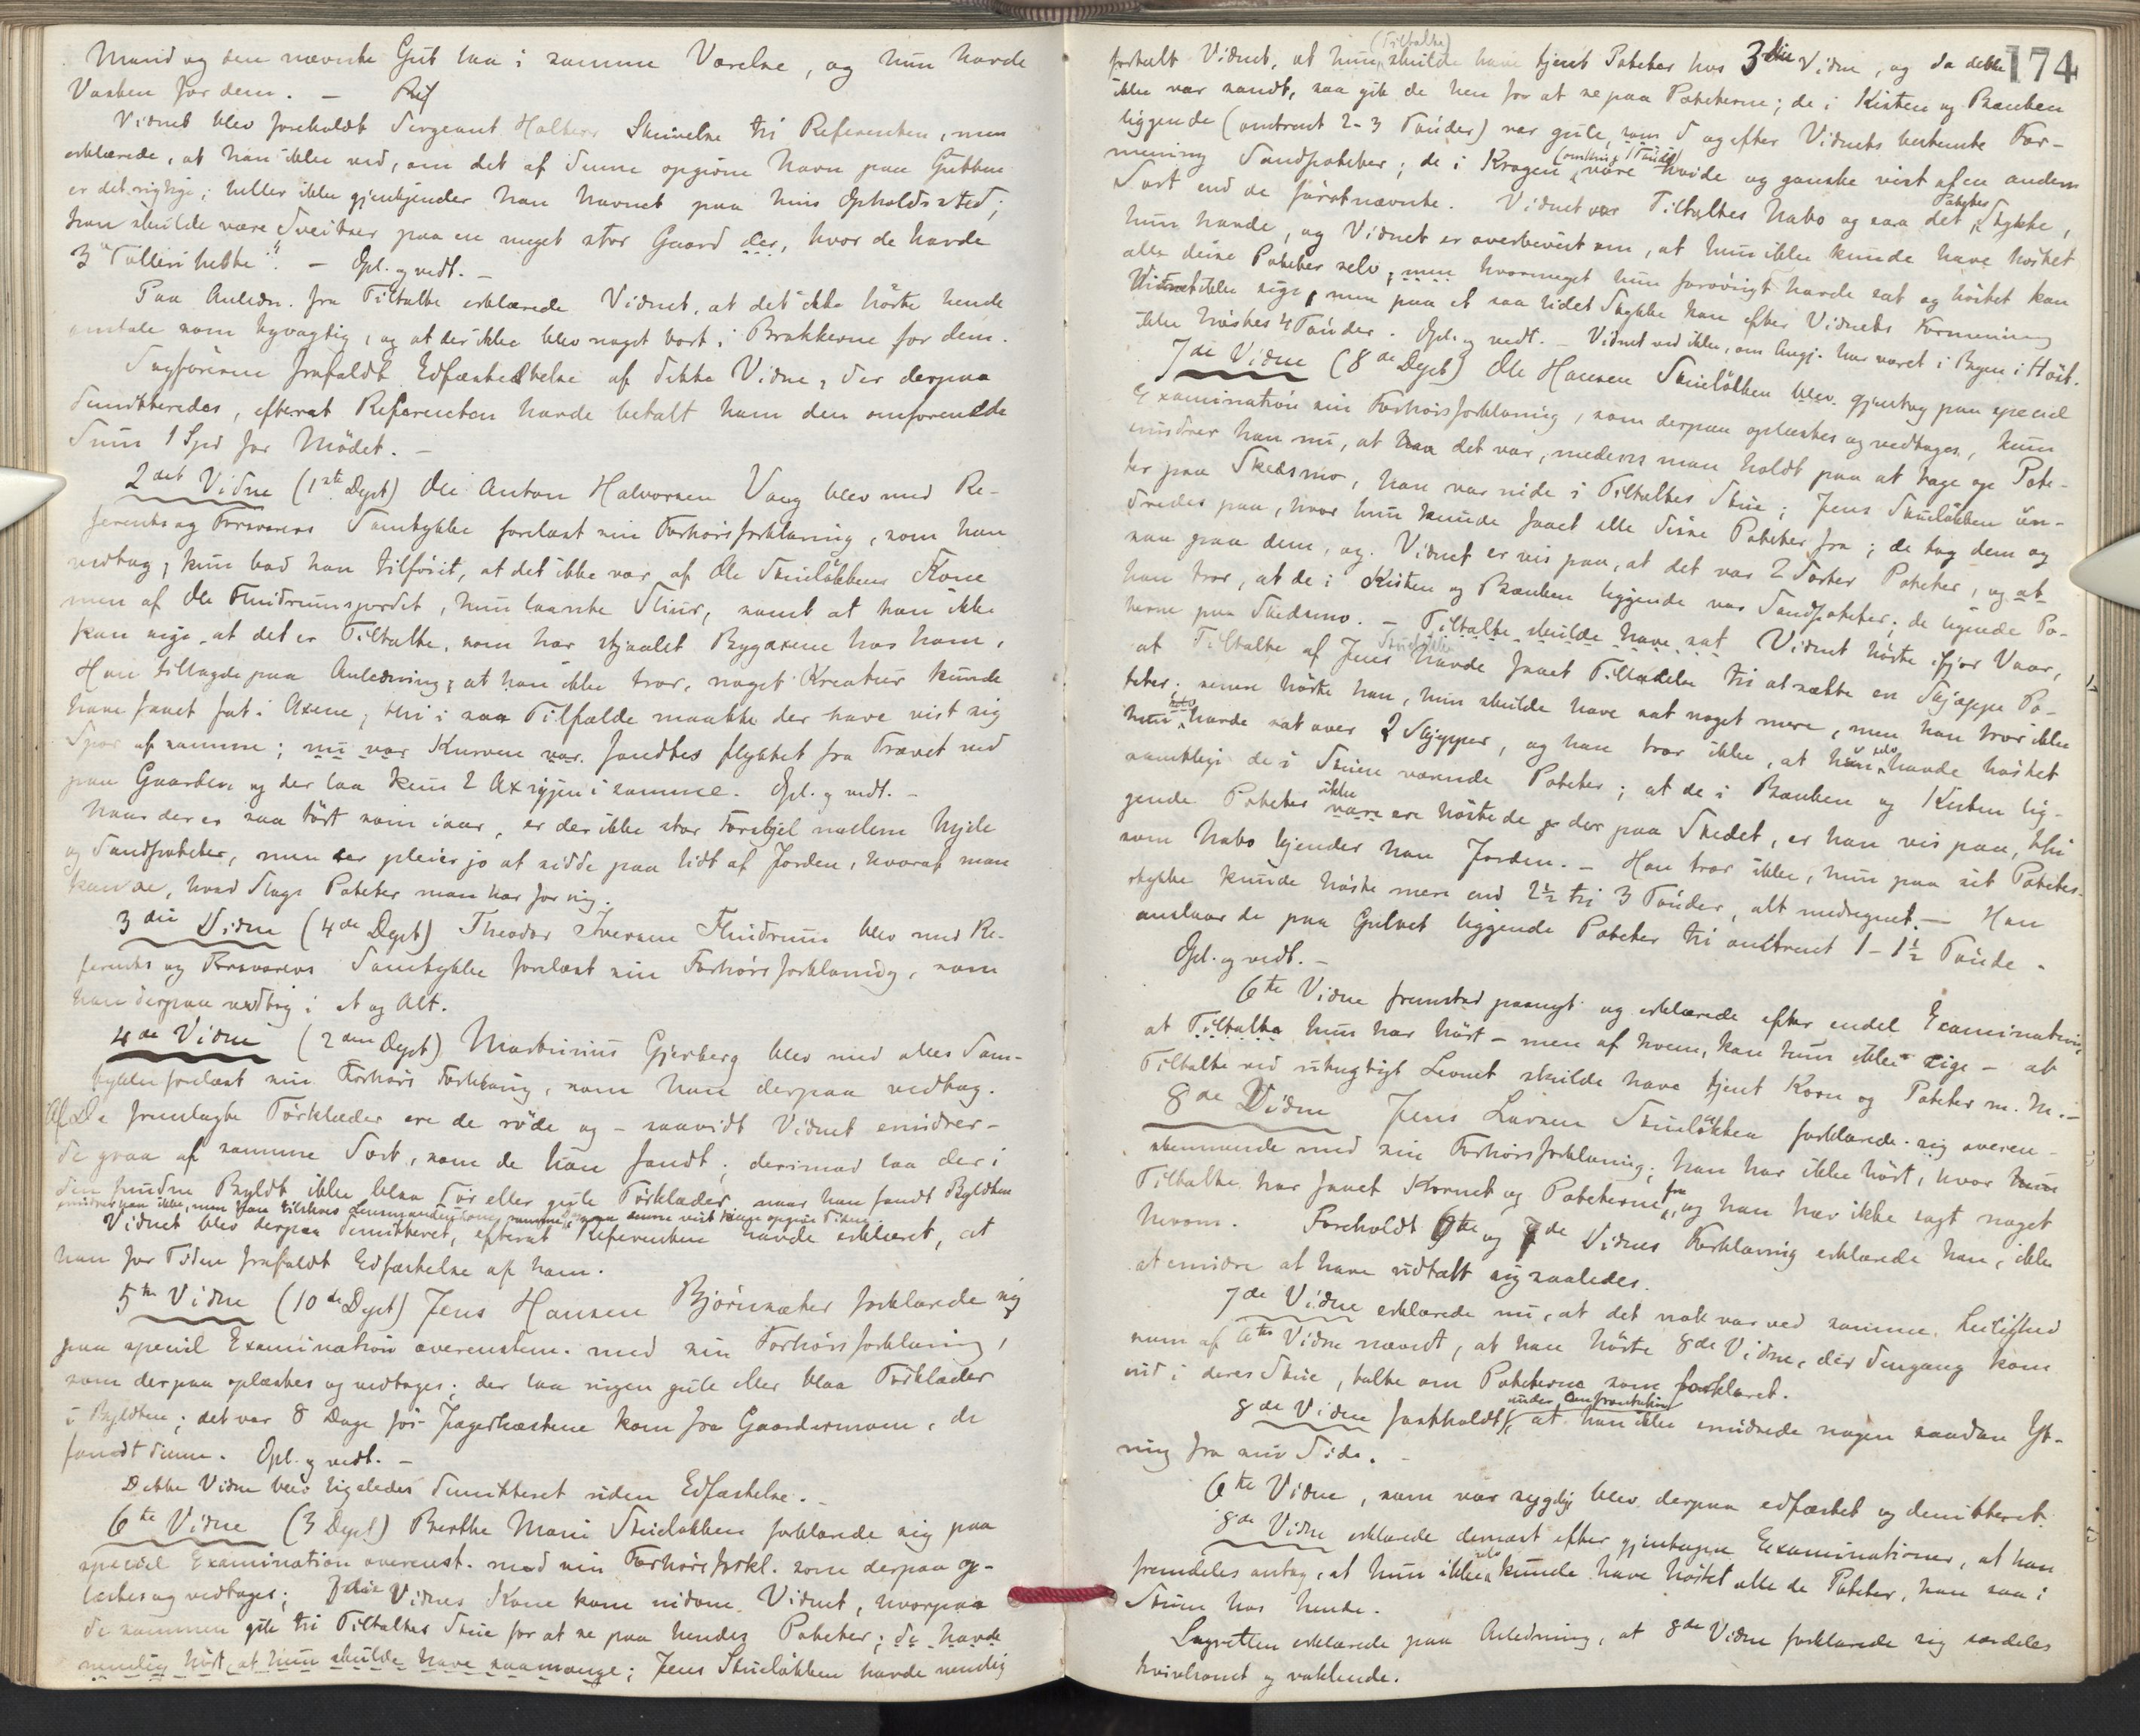 Mand og den nævnte Gut laa i samme Værelse, og hun havde
Vasken for dem. –
Vidnet blev foreholdt Sergeant Holters Skrivelse til Referenten, men
erklærede, at han ikke ved, om det af denne opgivne Navn paa Gutten
er det rigtige; heller ikke gjenkjender han Navnet paa hins Opholdssted;
han skulde være Sveitser paa en meget stor Gaard der, hvor de havde
3 – Opl. og vedt. –
Paa Anledn. fra Tiltalte erklærede Vidnet, at det ikke hörte hende
omtale som tyvagtig, og at der ikke blev noget bort i Brakkerne for dem.
Sagförerne frafaldt Edfæstelse af dette Vidne, der derpaa
demitteredes, efterat Referenten havde betalt ham den omforenede
Sum 1 Spd for Mödet. –
2det Vidne (1ste Dept) Ole Anton Halvorsen Vaag blev med Re-
ferents og Forsvarers Samtykke forelæst sin Forhörsforklaring, som han
vedtog; kun bad han tilföiet, at det ikke var af Ole Skuelökkens Kone
men af Ole Fluidrumsjordet, hun laante Stuur, samt at han ikke
kan sige, at det er Tiltalte, som har stjaalet Bygaxene hos ham.
Han tillagde paa Anledning, at han ikke tror, noget Kreatur kunde
have faaet fat i Axene, thi i saa Tilfælde maatte der have vist sig
Spor af samme; nu var Kurven var. fandtes flyttet fra Travet ned
paa Gaarden og der laa kun 2 Ax igjen i samme. Opl. og vedt. –
Naar der er saa tört som iaar, er der ikke stor Forskjel mellem hyde
og Sandpoteter, men der pleier jo at sidde paa lidt af Jorden, hvoraf man
kan se, hvad Slags Poteter man har for sig.
3die Vidne (4de Dept) Theodor Iversen Fluidrum blev med Re-
ferents og Forsvarers Samtykke forelæst sin Forhörsforklaring, som
han derpaa vedtog i et og Alt.
4de Vidne (2den Dept) Martinius Gjerberg blev med alles Sam-
tykke forelæst sin Forhörs Forklaring, som han derpaa vedtog.
Af De fremlagte Törklæder ere de röde og – saavidt Vidnet erindrer –
de graa af samme Sort, som de han fandt; derimod laa der i
den fundne Byldt ikke blaa Tör eller gule Törklæder, naar han fandt Byldten
erindrer han ikke, men han
Vidnet blev derpaa demitteret, efterat Referenten havde erklæret, at
han for Tiden frafaldt Edfæstelse af ham.
5te Vidne (10de Dept) Jens Hansen Björnsæter forklarede sig
paa speciel Examination overenstem. med sin Forhörsforklaring,
som derpaa oplæstes og vedtoges; der laa ingen gule eller blaa Törklæder
i Byldten; det var 8 Dage för Jagerhestene kom fra Gaardermoen, de
fandt denne. Opl. og vedt. –
Dette Vidne blev ligeledes demitteret uden Edfæstelse. –
6te Vidne (3 Dept) Berthe Marie Skuelökken forklarede sig paa
speciel Examination overenst. med sin Forhörsforkl. som derpaa op-
læstes og vedtoges; 3die Vidnes Kone kom indom Vidnet, hvorpaa
de sammen gik til Tiltaltes Stue for at se paa hendes Poteter; de havde
nemlig hört, at hun skulde have saamange; Jens Skuelökken havde nemlig
174
(Tiltalte)
fortalt Vidnet, at hun skulde have tjent Poteter hos 3die Vidne, og da dette
ikke var sandt, saa gik de hen for at se paa Poteterne; de i Kisten og Bænken
liggende (omtrent 2-3 Tönder) var gule, som S og efter Vidnets bestemte For-
mening Sandpoteter; de i Krogen (omkring 1 Tönde) vare hvide og ganske vist af en anden
Sort end de förstnævnte. Vidnet var Tiltaltes Nabo og saa det Potetes Stykke,
hun havde, og Vidnet er overbevist om, at hun ikke kunde have höstet
alle disse Poteter selv; men hvormeget hun forövrigt havde sat og höstet kan
Vidnet ikke sige, men paa et saa lidet Stykke kan efter Vidnets Formening
ikke höstes 4 Tönder. Opl. og vedt. – Vidnet ved ikke, om Angj. har været i Byen i Höst.
7de Vidne (8de Dept) Ole Hansen Skuelökken blev gjentog paa speciel
Examination sin Forhörsforklaring, som derpaa oplæstes og vedtoges, kun
erindrer han nu, at han det var, medens man holdt paa at tage op Pote-
ter paa Skedsmo, han var inde i Tiltaltes Stue; Jens Skuelökken un-
dredes paa, hvor hun kunde faaet alle disse Poteter fra; de tog dem og
saa paa dem, og. Vidnet er vis paa, at det var 2 Sorter Poteter, og at
han tror, at de i Kisten og Bænken liggende var Sandpoteter; de lignede Po-
teterne paa Skedsmo. – Tiltalte skulde have sat Vidnet hörte ifjor Vaar,
at Tiltalte af Jens Skuelökken havde faaet Tilladelse til at sætte en Skjæppe Po-
teter; senere hörte han, hun skulde have sat noget mere, men han tror ikke
hun havde sat over 2 Skjepper, og han tror ikke, at hun selv havde höstet
samtlige de i Stuen værende Poteter; at de i Bænken og Kisten lig-
gende Poteter ikke vare ere höstede der paa Stedet, er han vis paa, thi
som Nabo kjender han Jorden. – Han tror ikke, hun paa sit Potetes-
stykke kunde höste mere end 2½ til 3 Tönder, alt medregnet. – Han
anslaar de paa Gulvet liggende Poteter til omtrent 1 – 1½ Tönde.
Opl. og vedt. –
6te Vidne fremstod paanyt og erklærede efter endel Examination,
at Tiltalte hun har hört – men af hvem, kan hun ikke sige – at
Tiltalte ved utugtigt Levnet skulde have tjent Korn og Poteter m. M. –
8de Vidne Jens Larsen Skuelökken forklarede sig overen-
stemmende med sin Forhörsforklaring; han har ikke hört, hvor hun
Tiltalte har faaet Kornet og Poteterne fra, og han har ikke sagt noget
herom. Foreholdt 6te og 7de Vidnes Forklaring erklærede han, ikke
at erindre at have udtalt sig saaledes.
7de Vidne erklærede nu, at det nok var ved samme Leilighed
som af 6te Vidne nævnt, at han hörte 8de Vidne, der dengang kom
ind i deres Stue, talte om Poteterne som forklaret.
8de Vidne fastholdt under Confrontation, at han ikke erindrede nogen saadan Yt-
ring fra sin Side.
6te Vidne, som var sygelig blev derpaa edfæstet og demitteret.
8de Vidne erklærede dernæst efter gjentagne Examinationer, at han
fremdeles antog, at hun ikke selv kunde have höstet alle de Poteter, han saa i
Stuen hos hende.
Lagretten erklærede paa Anledning, at 8de Vidne forklarede sig særdeles
tvivlsomt og vaklende.